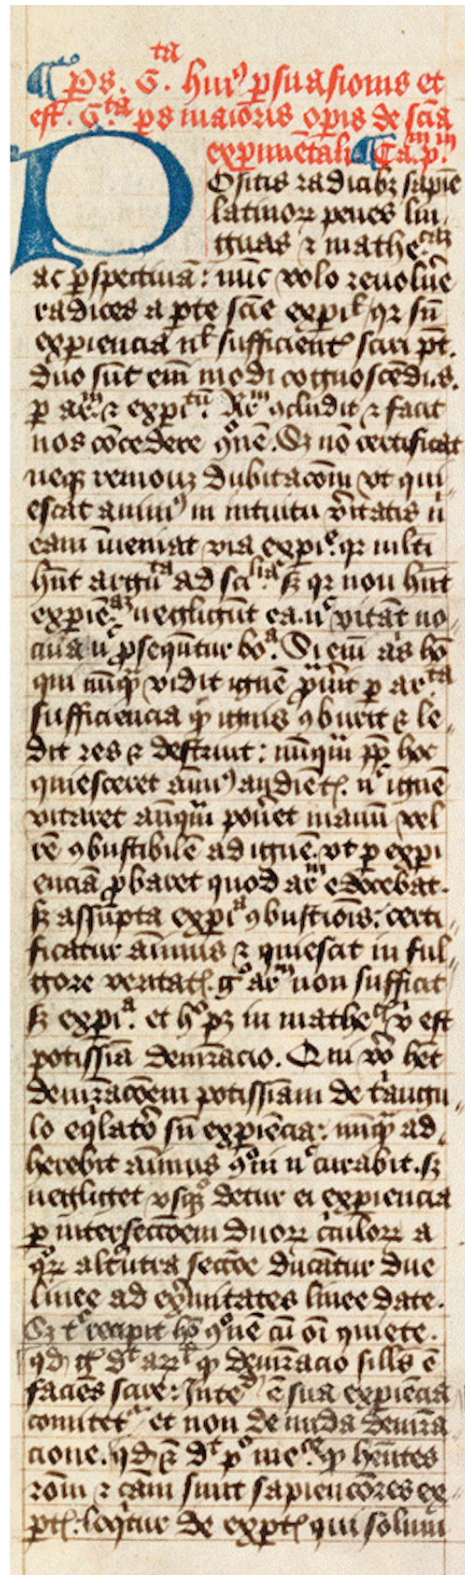 ¶ p̄s . 6.ta hui9 ꝑsuasionis et
est . 6.ta ps maioris opīs de sc̄ia
exꝑimētali ¶ Ca.m p.m
Ositis radicibꝫ sapiē
latinoꝝ penes lin
guas ⁊ mathe.caꝫ
ac ꝑspectiuā : nūc volo reuolu̅e
radices a ꝑte scīe exꝑil̄ qꝛ sn̄
exꝑiencia nl̄ sufficient̄ sciri pt̄.
duo sūt em̄ modi cognoscēdi .s.
ꝑ ar.m ⁊ exꝑi.tū . Ar.m ꝯcludit ⁊ facit
nos cōcedere q̄onē . Sꝫ nō certificat
neqꝫ remouꝫ dubitacōm vt qui
escat anim9 in intuitu ꝟitatis n̄
eam īueniat via exꝑi.e qꝛ ml̄ti
hn̄t argu.ta ad sci.lia sꝫ qꝛ non hn̄t
exꝑiē.aꝫ negligūt ea . nc vitāt no
ciua nc ꝓsequntur bo.a . Si em̄ aīs hō
qui nūqꝫ vidit ignē ꝓbau̅it ꝑ ar.ta
sufficiencia ꝙ ignis ꝯburit ⁊ le
dit res ⁊ destruit : nūqm̄ ꝓp̄ hoc
quiesceret anī9 audiēt̄ . nc ignē
vitaret anq̄m pon̄et manū vel
rē ꝯbustibilē ad ignē . vt ꝑ exꝑi
enciā ꝓbaret quod ar.m edocebat .
sꝫ assūpta exꝑi.a ꝯbustiōis : certi
ficatur animus ⁊ quiescit in ful
gore veritat̄ . go ar.m non sufficit
sꝫ exꝑi.a . et ho pꝫ in mathe.cis vͥ est
potissīa demr̄acio . Qui vo hēt
demr̄acōem potissīam de t̄angu
lo eq̄lato sn̄ exꝑiēcia : nūqꝫ ad
herebit animus q̄oni nc curabit . sꝫ
negliget vsqꝫ detur ei exꝑiencia
ꝑ intersecc̄oem duoꝝ cīculoꝝ a
qͦꝝ alt̄utra secc̄oe ducātur due
linee ad ext̄mitates linee date .
Sꝫ tc recipit hō q̄onē cū oī quiete .
qd̄ g dt ar.l ꝙ demr̄acio sill̄s ē
faciēs scire : Inte.d ē sua exꝑiēcia
comitet.r et non de nuda demr̄a
cione . qd̄ ⁊ dt po me.ce ꝙ hn̄tes
rōm ⁊ cām sunt sapiencōres ex
ꝑt̄ . loq̄tur de exꝑt̄ qui solum